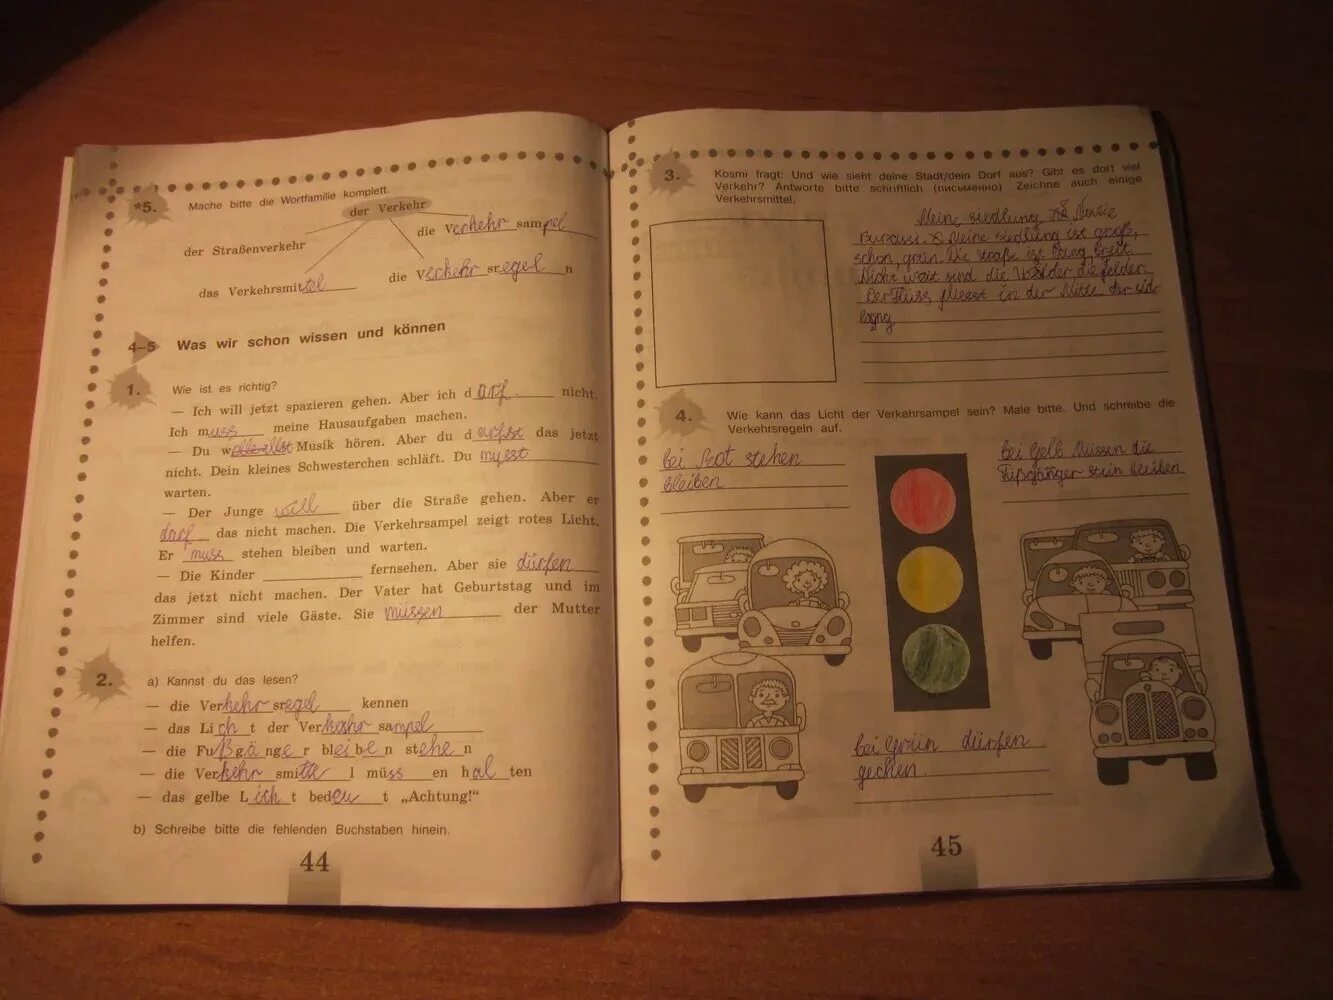 *5.
Mache bitte die Wortfamilie komplett.
der Verkehr
die Verkehrsampel
der Straßenverkehr
die Verkehrsregeln
das Verkehrsmittel
4–5 Was wir schon wissen und können
1.
Wie ist es richtig?
— Ich will jetzt spazieren gehen. Aber ich darf nicht.
Ich muss meine Hausaufgaben machen.
— Du w Musik hören. Aber du darfst das jetzt
nicht. Dein kleines Schwesterchen schläft. Du musst
warten.
— Der Junge will über die Straße gehen. Aber er
darf das nicht machen. Die Verkehrsampel zeigt rotes Licht.
Er muss stehen bleiben und warten.
— Die Kinder fernsehen. Aber sie dürfen
das jetzt nicht machen. Der Vater hat Geburtstag und im
Zimmer sind viele Gäste. Sie müssen der Mutter
helfen.
2.
a) Kannst du das lesen?
— die Verkehrsregel kennen
— das Licht der Verkehrsampel
— die Fußgänger bleiben stehen
— die Verkehrsmittel müssen halten
— das gelbe Licht bedeut „Achtung!“
b) Schreibe bitte die fehlenden Buchstaben hinein.
44
3.
Kosmi fragt: Und wie sieht deine Stadt/dein Dorf aus? Gibt es dort viel
Verkehr? Antworte bitte schriftlich (письменно) Zeichne auch einige
Verkehrsmittel.
Meine siedlung
Meine siedlung ist groß,
schon, grün. Die straße ist breit
Nicht weit sind die die felder
Der Fluss in der Mitte der
4.
Wie kann das Licht der Verkehrsampel sein? Male bitte. Und schreibe die
Verkehrsregeln auf.
bei Rot stehen
bleiben
bei Gelb Müssen die
Fußgänger bleiben
bei Grün dürfen
gechen.
45